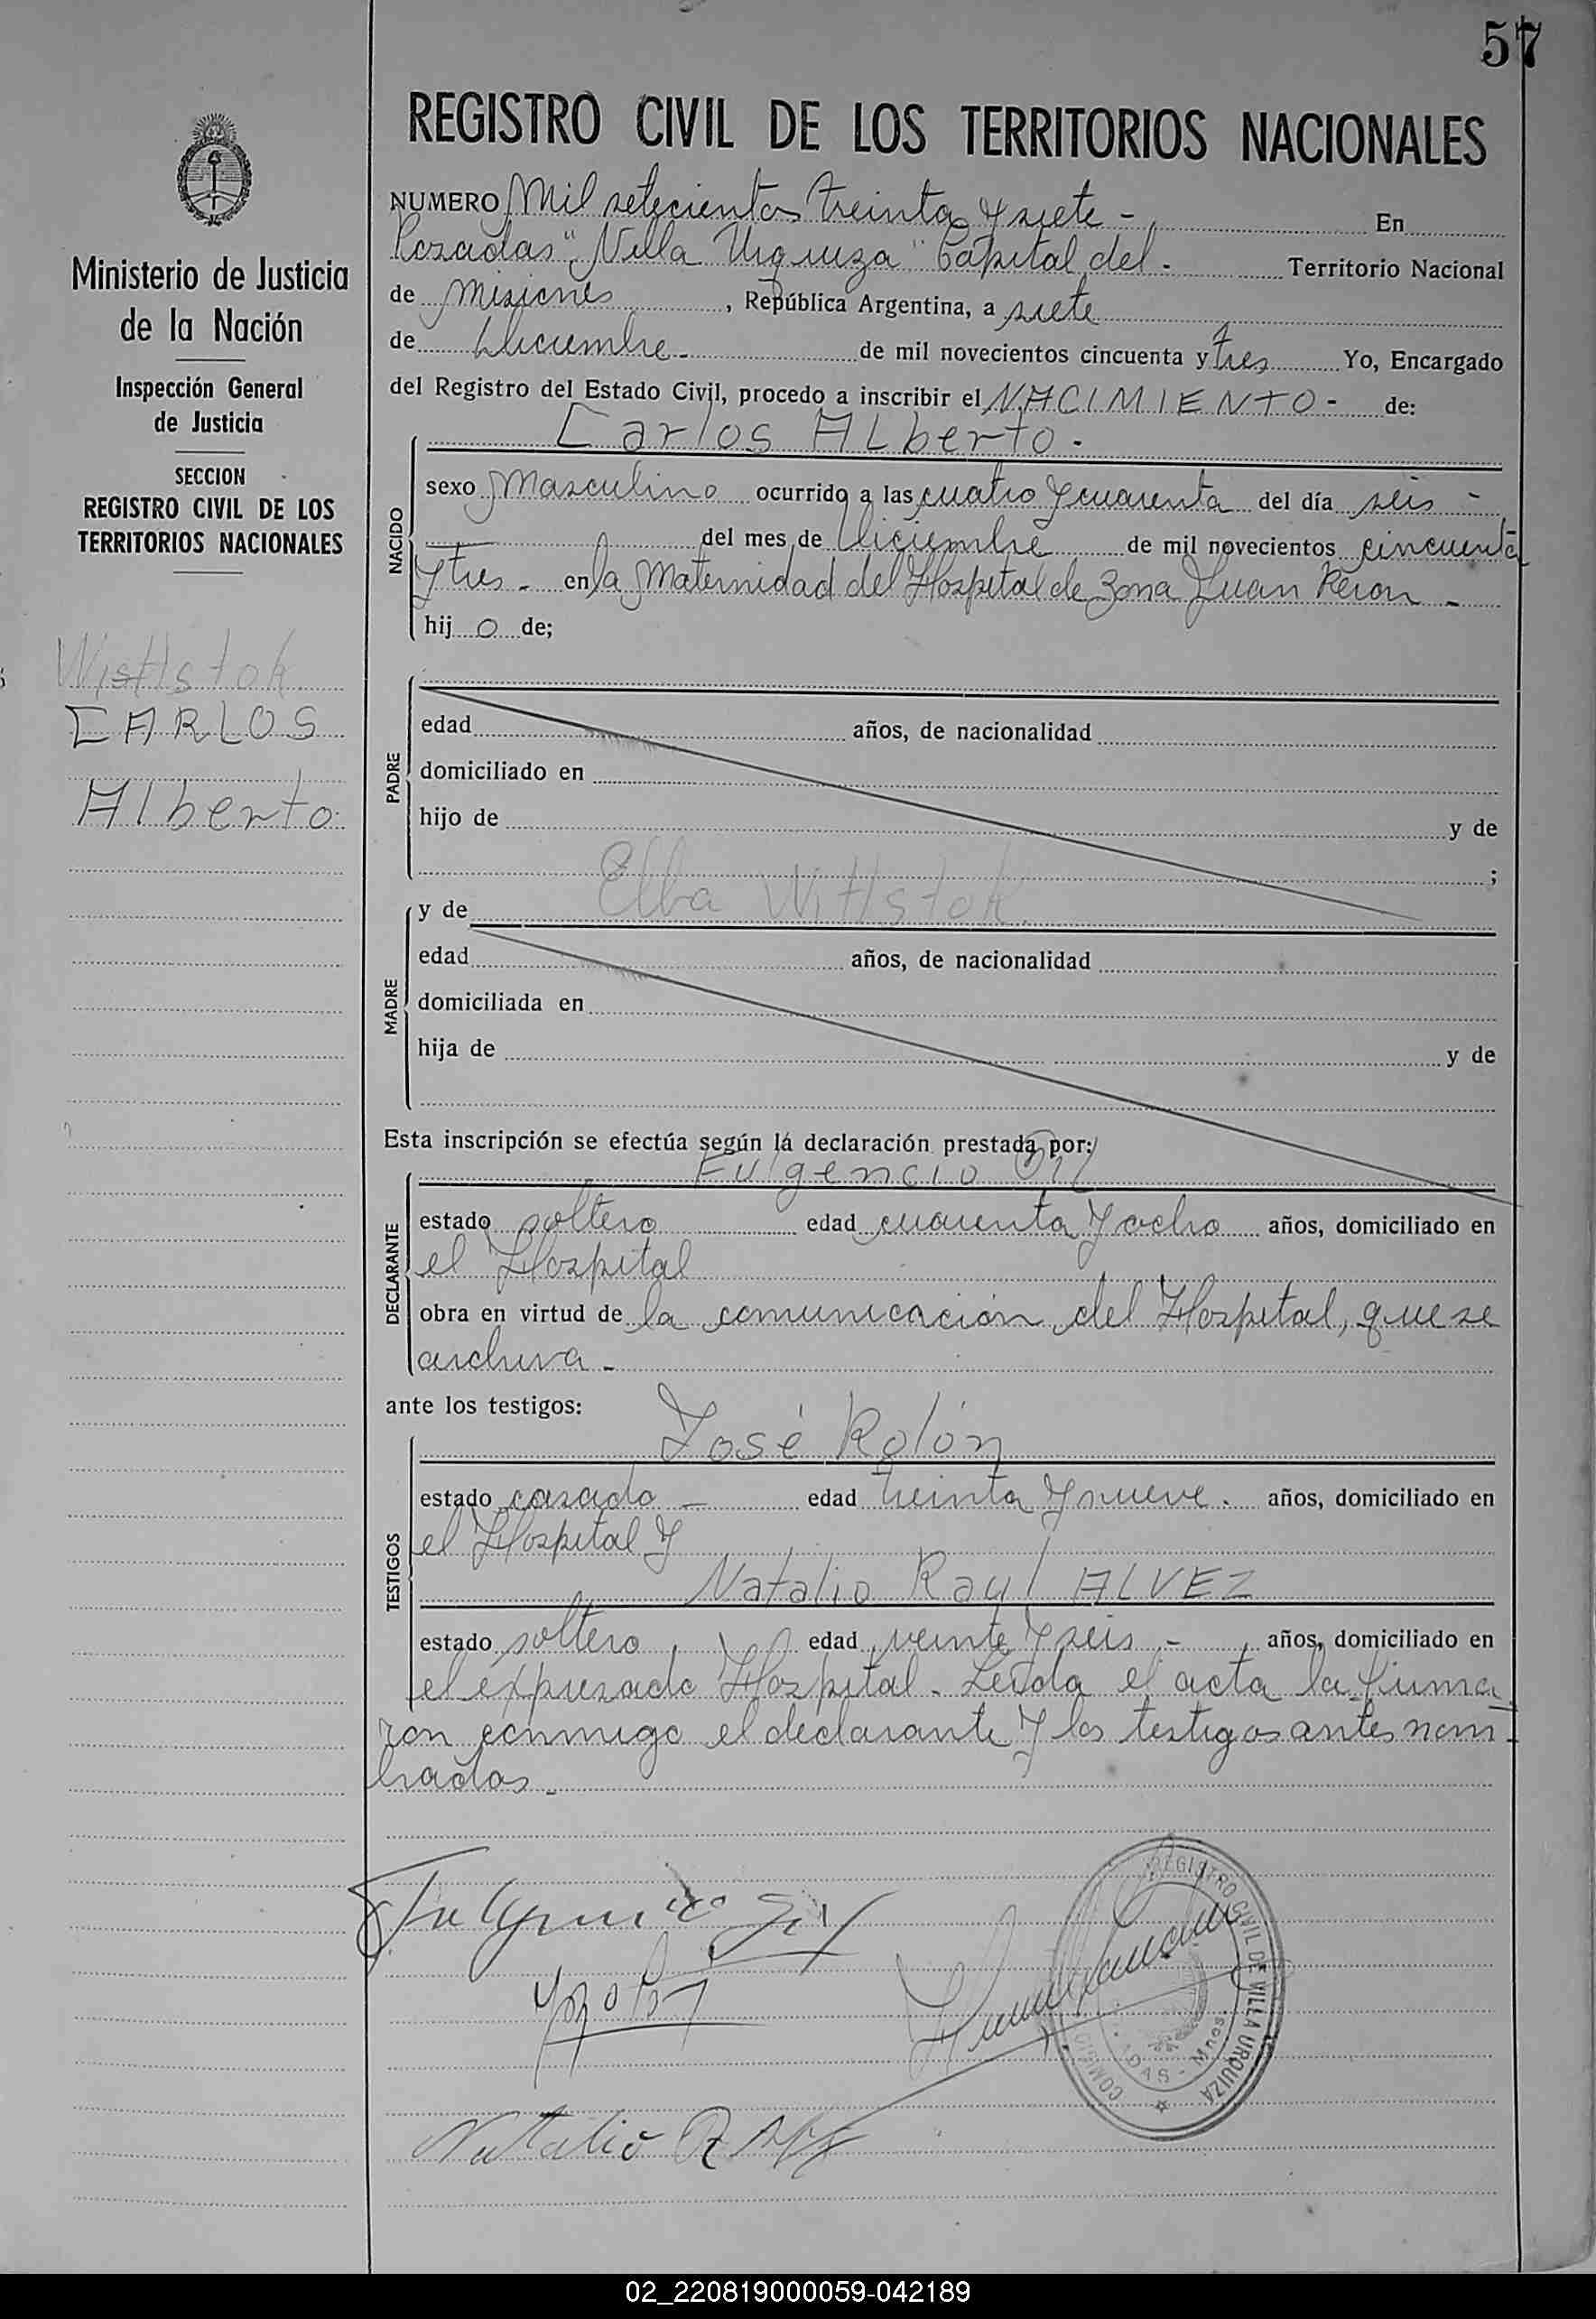 57
REGISTRO CIVIL DE LOS TERRITORIOS NACIONALES
Ministerio de Justicia
de la Nación
Inspección General
de Justicia
SECCION
REGISTRO CIVIL DE LOS
TERRITORIOS NACIONALES
Wisttstok
CARLOS
Alberto
NUMERO Mil setecientos treinta y siete - En
Posadas "Villa Urquiza" Capital del - Territorio Nacional
de Misiones, República Argentina, a siete
de Diciembre - de mil novecientos cincuenta y tres Yo, Encargado
del Registro del Estado Civil, procedo a inscribir el NACIMIENTO - de:
Carlos ALberto -
NACIDO
sexo Masculino ocurrido a las cuatro y cuarenta del día seis -
del mes de Diciembre de mil novecientos cincuenta
y tres - en la Maternidad del Hospital de Zona Juan Peron -
hij o de;
PADRE
edad años, de nacionalidad
domiciliado en
hijo de y de
;
MADRE
y de Elba Wittstok
edad años, de nacionalidad
domiciliada en
hija de y de
Esta inscripción se efectúa según la declaración prestada por:
Fulgencio Gil
DECLARANTE
estado soltero edad cuarenta y ocho años, domiciliado en
el Hospital
obra en virtud de la comunicación del Hospital, que se
archiva -
ante los testigos:
José Rolón
TESTIGOS
estado casado - edad treinta y nueve - años, domiciliado en
el Hospital y
Natalio Raul ALVEZ
estado soltero, edad veinte y seis - años, domiciliado en
el expresado Hospital - Leída el acta la firma
ron conmigo el declarante y los testigos antes nom-
brados -
Fulgencio Gil
Natalio R
REGISTRO CIVIL DE VILLA URQUIZA
ADAS - Mnes.
02_220819000059-042189